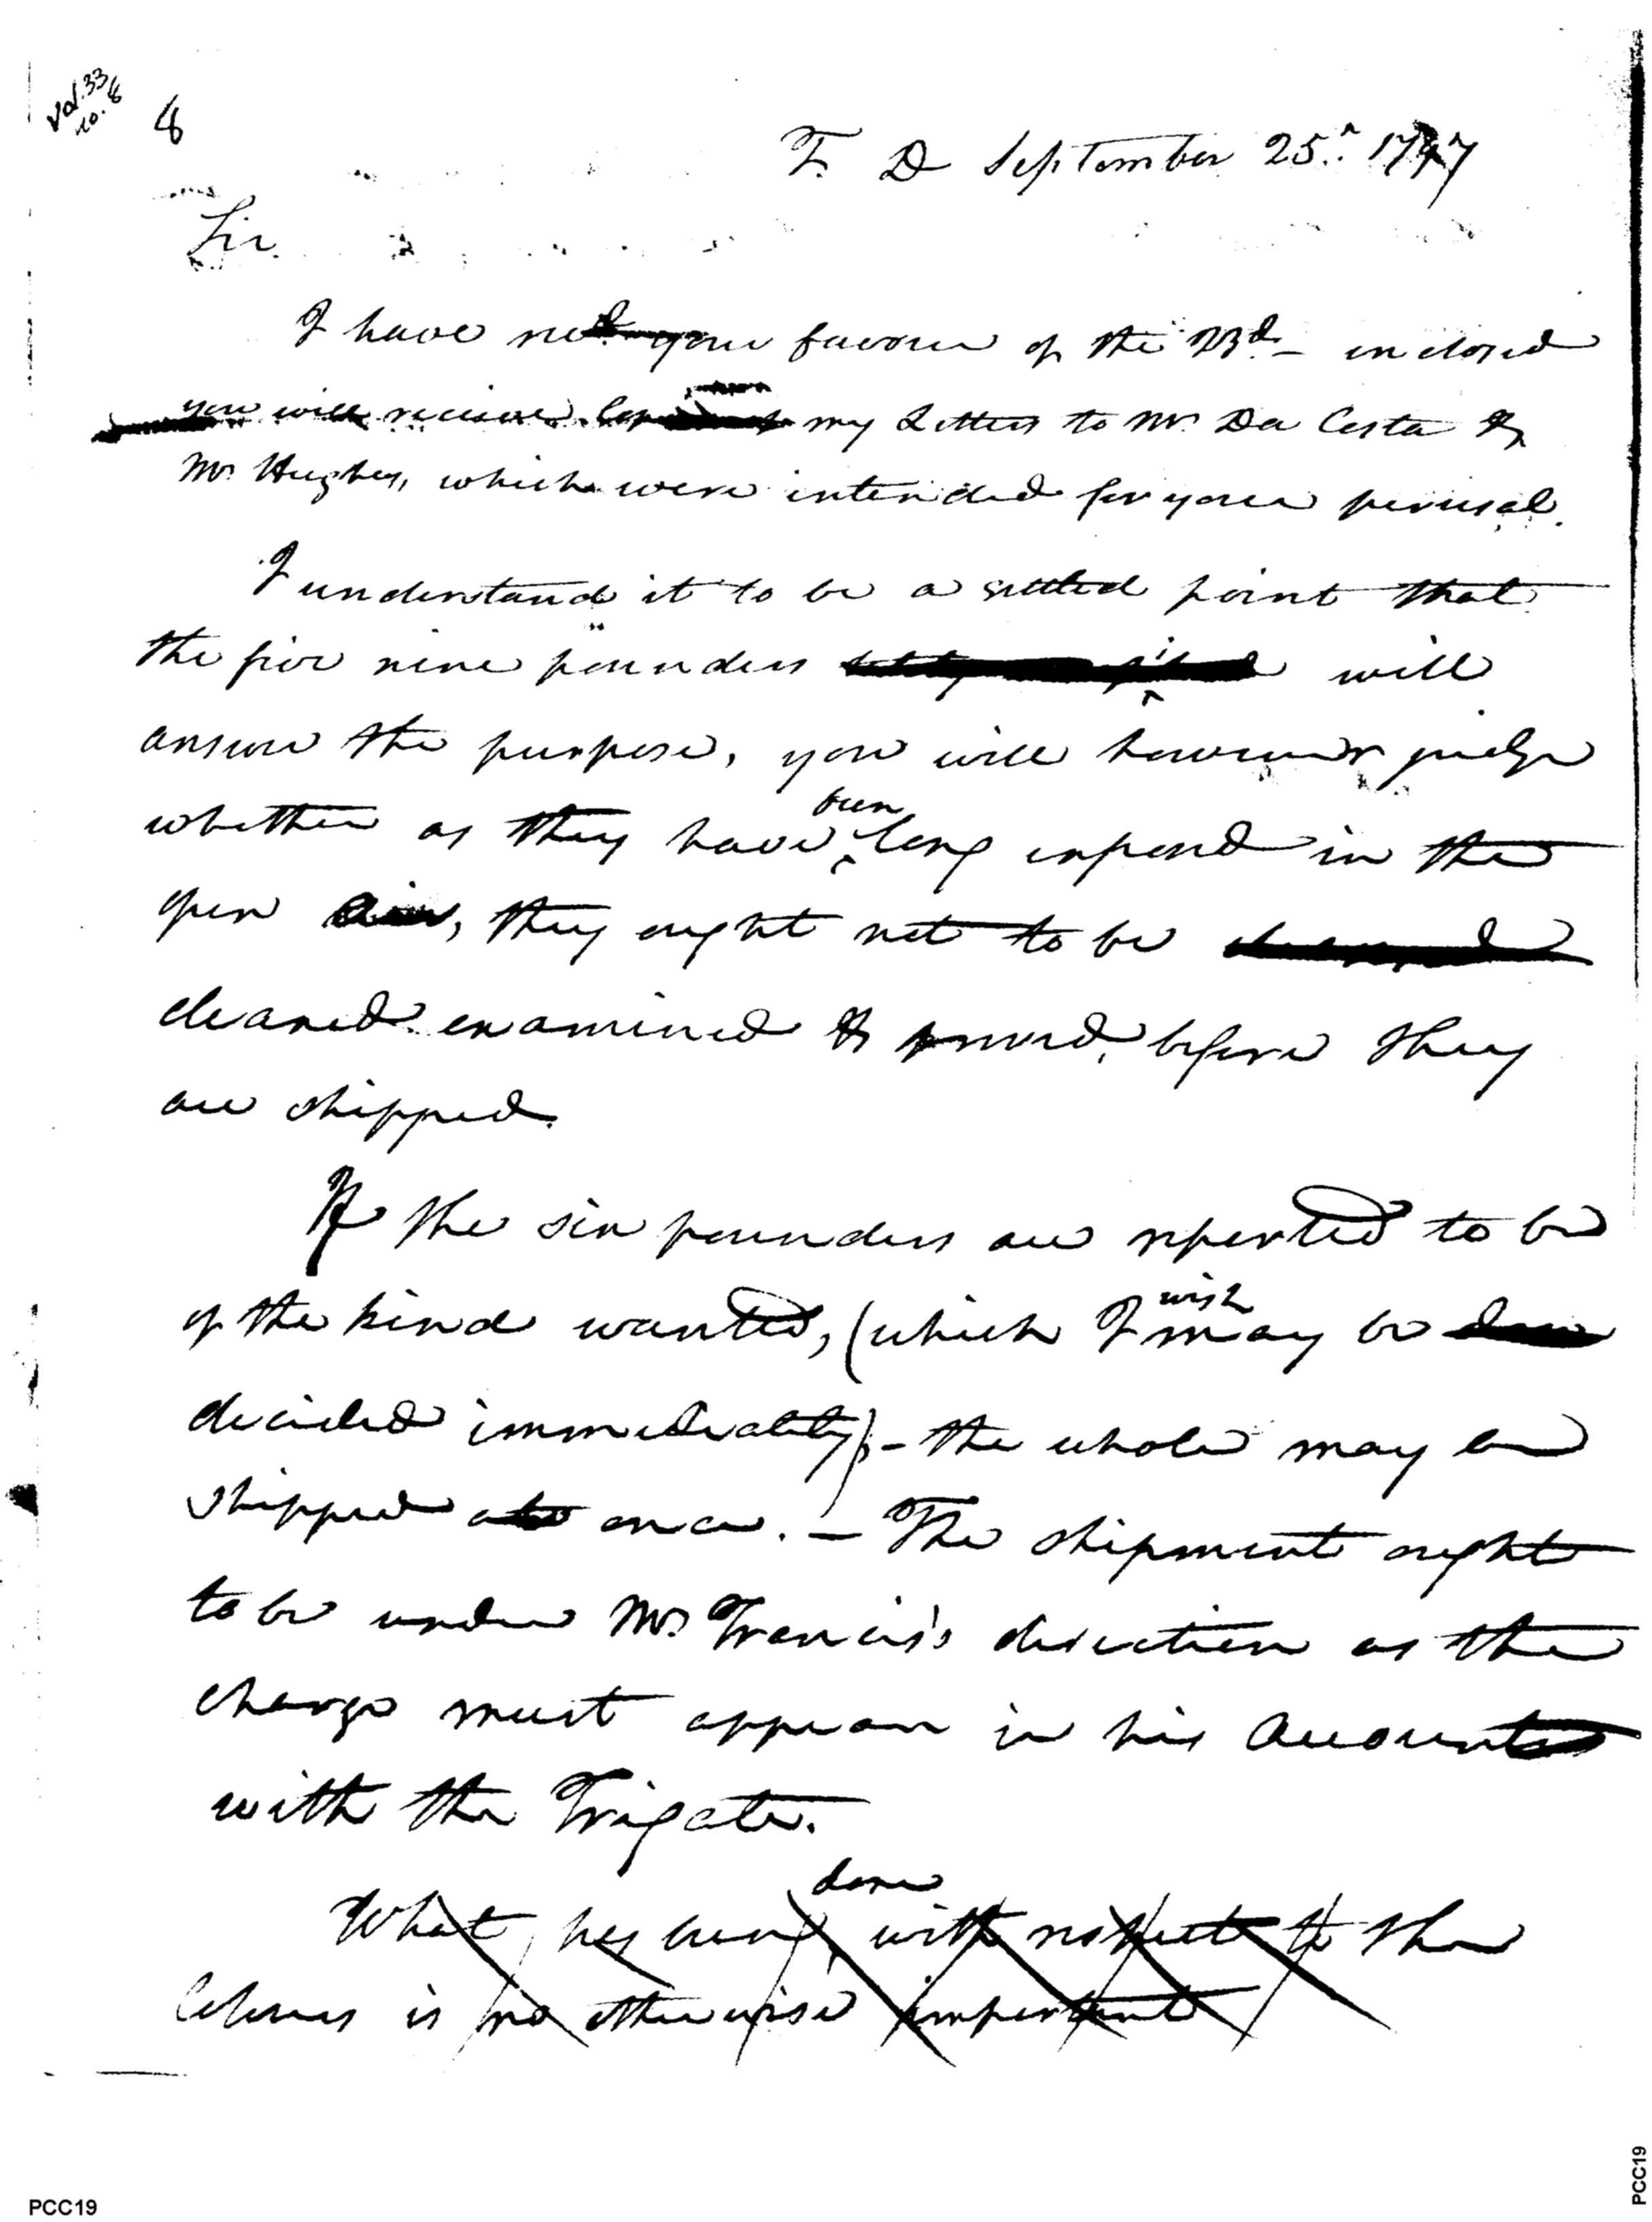 Vol. 33
no. 8
8
T. D September 25.. 1797
Sir.
I have recd your favour of the 23d - inclosed
you will receive my Letters to Mr Da Costa &
Mr Hughes, which were intended for your perusal.
I understand it to be a settled point that
the five nine pounders will
answer the purpose, you will however judge
whether as they have been long exposed in the
open air, they ought not to be
cleaned examined & proved, before they
are shipped.
If the six pounders are reported to be
of the kind wanted, (which I wish may be
decided immediately) - the whole may be
shipped at once. - The shipment ought
to be under Mr Francis's direction as the
charge must appear in his Accounts
with the Frigate.
What has been done with respect to the
is no otherwise important
PCC19
PCC19